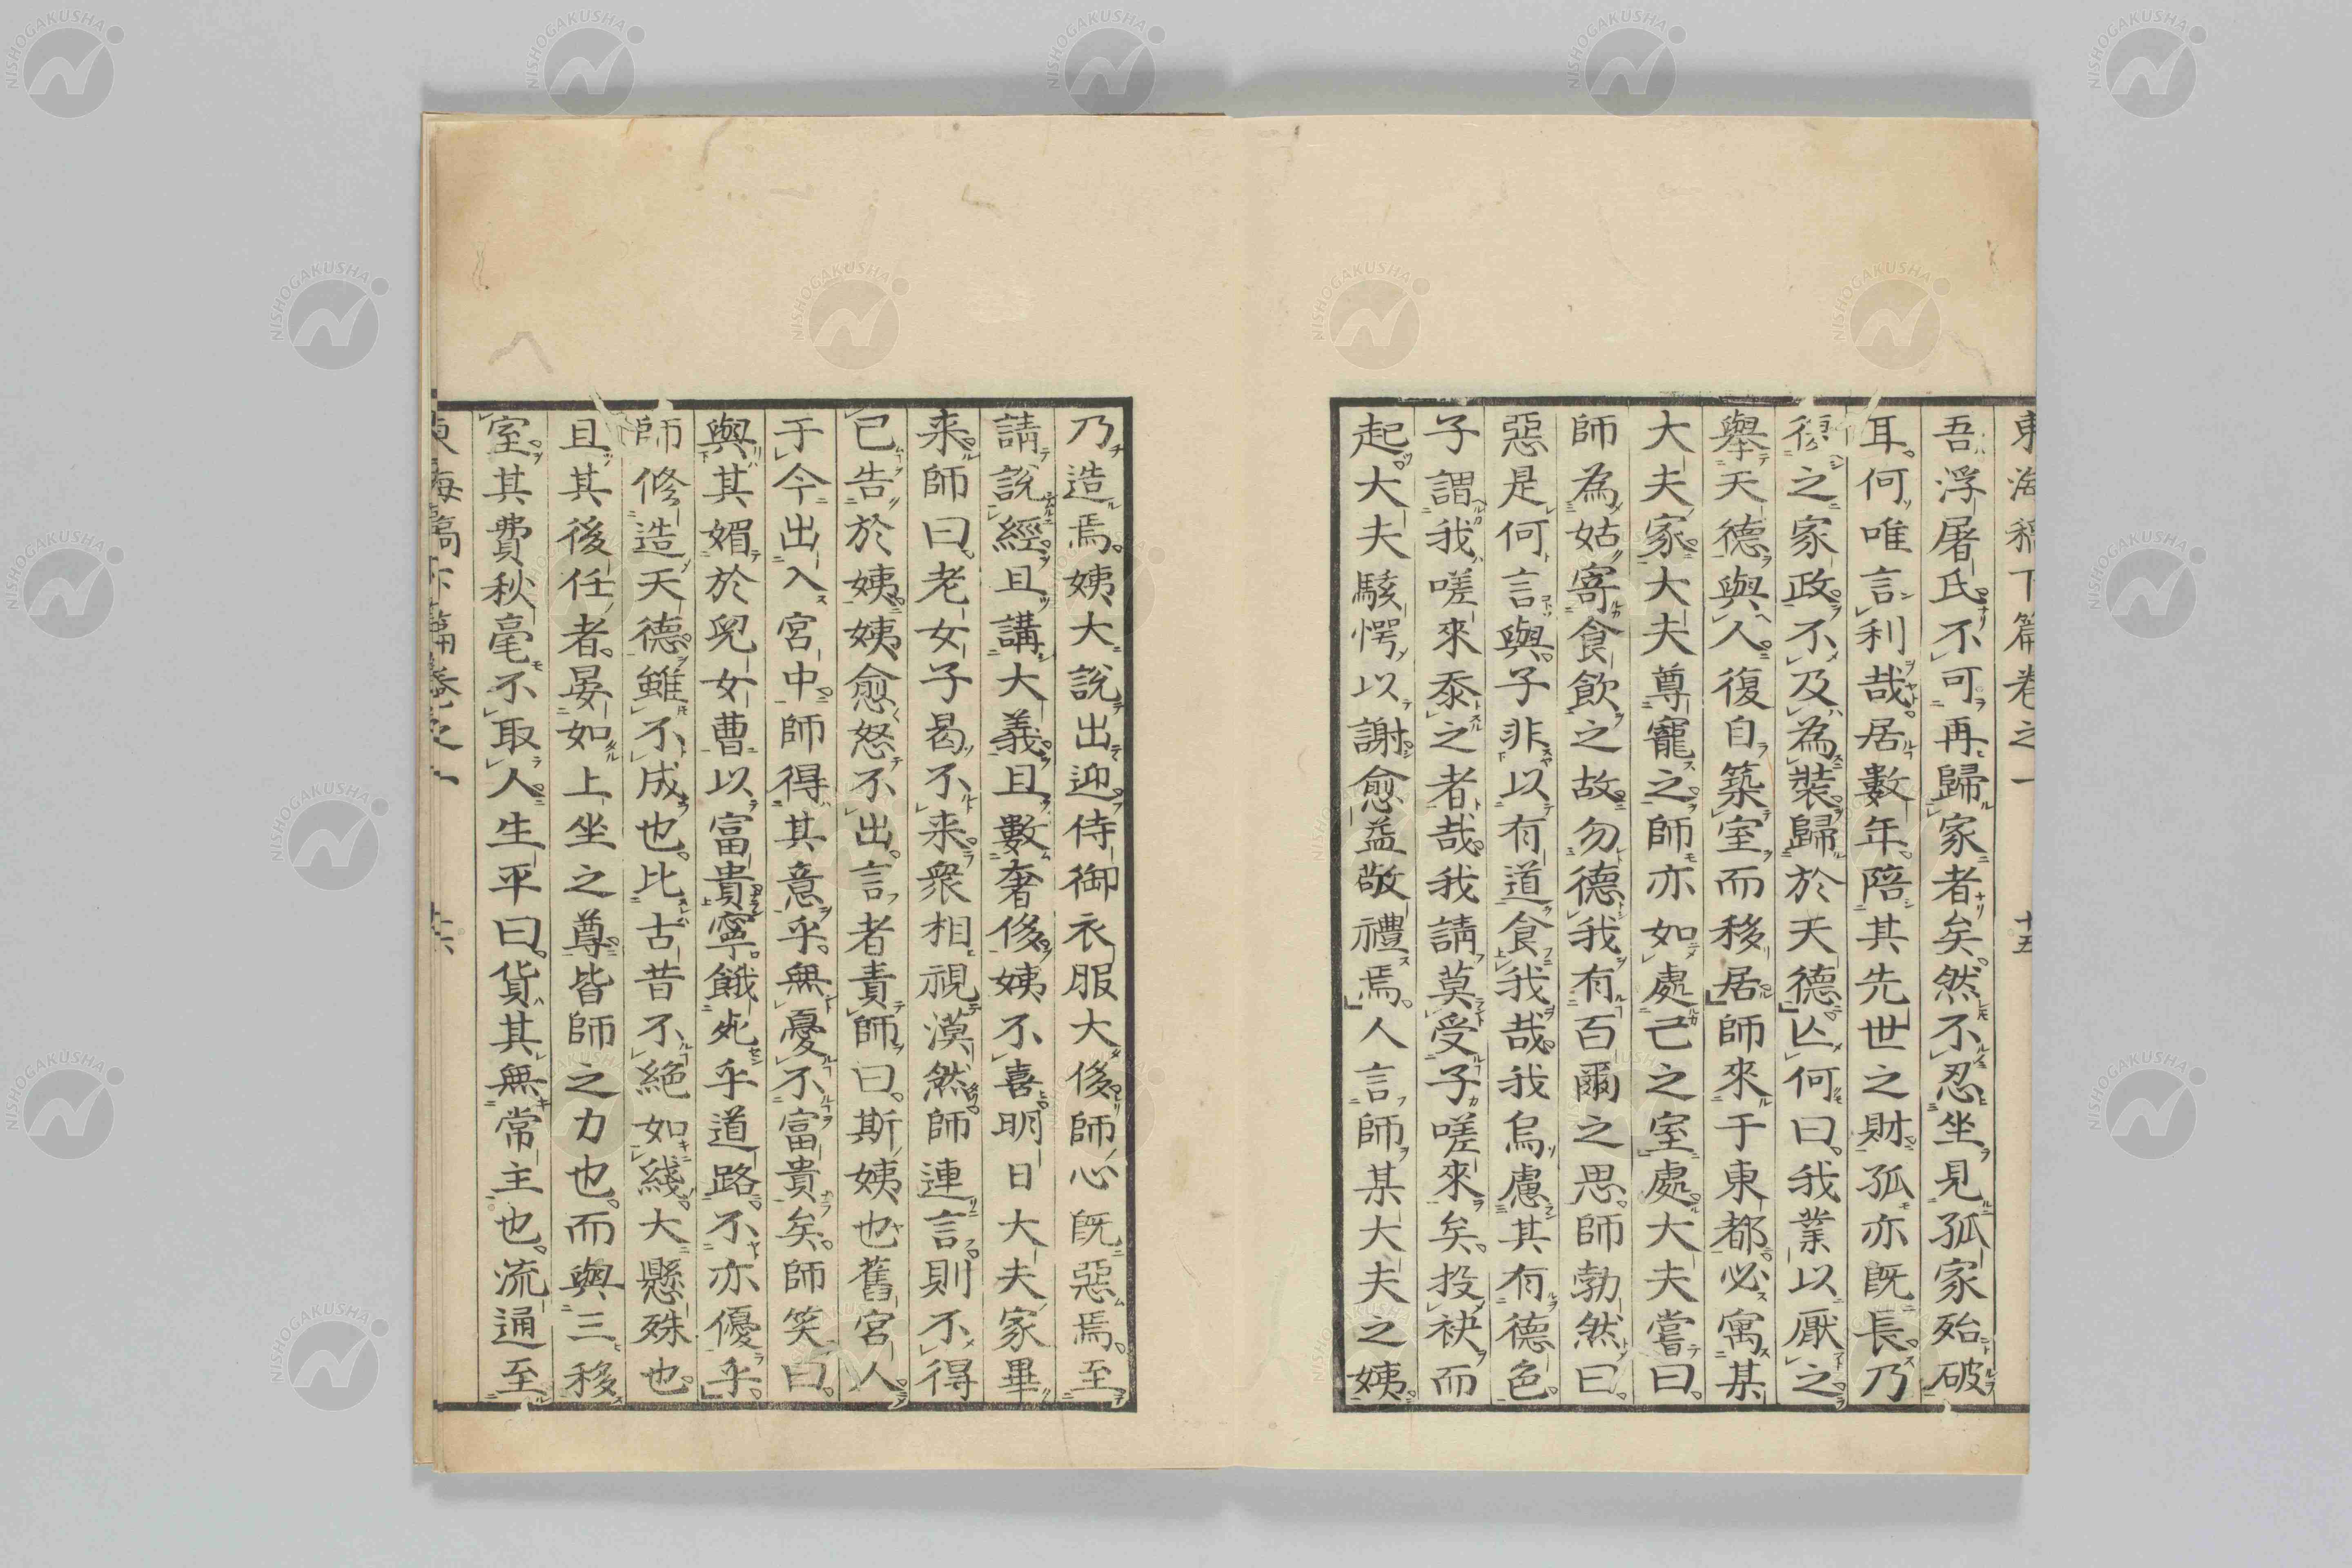 東海稿下篇卷之一 十五
吾浮屠氏不可再歸家者矣然不忍坐見孤家殆破
耳何唯言利哉居數年陪其先世之財孤亦既長乃
復之家政不及為裝歸於天德亾何曰我業以厭之
舉天德與人復自築室而移居師來于東都必寓某
大夫家大夫尊寵之師亦如處己之室處大夫嘗曰
師為姑寄食飲之故勿德我有百爾之思師勃然曰
惡是何言與子非以有道食我哉我烏慮其有德色
子謂我嗟來忝之者哉我請莫受子嗟來矣投袂而
起大夫駭愕以謝愈益敬禮焉人言師某大夫之姨
乃造焉姨大說出迎侍御衣服大侈師心既惡焉至
請說經且講大義且數奢侈姨不喜明日大夫家畢
来師曰老女子曷不来衆相視漠然師連言則不得
已告於姨姨愈怒不出言者責師曰斯姨也舊宮人
于今出入宮中師得其意乎無憂不富貴矣師笑曰
與其媚於兒女曹以富貴寧餓死乎道路不亦優乎
師修造天德雖不成也比古昔不絕如綫大懸殊也
且其後任者晏如上坐之尊皆師之力也而與三移
室其費秋毫不取人生平曰貨其無常主也流通至
東海稿下篇卷之一 十六
NISHOGAKUSHA